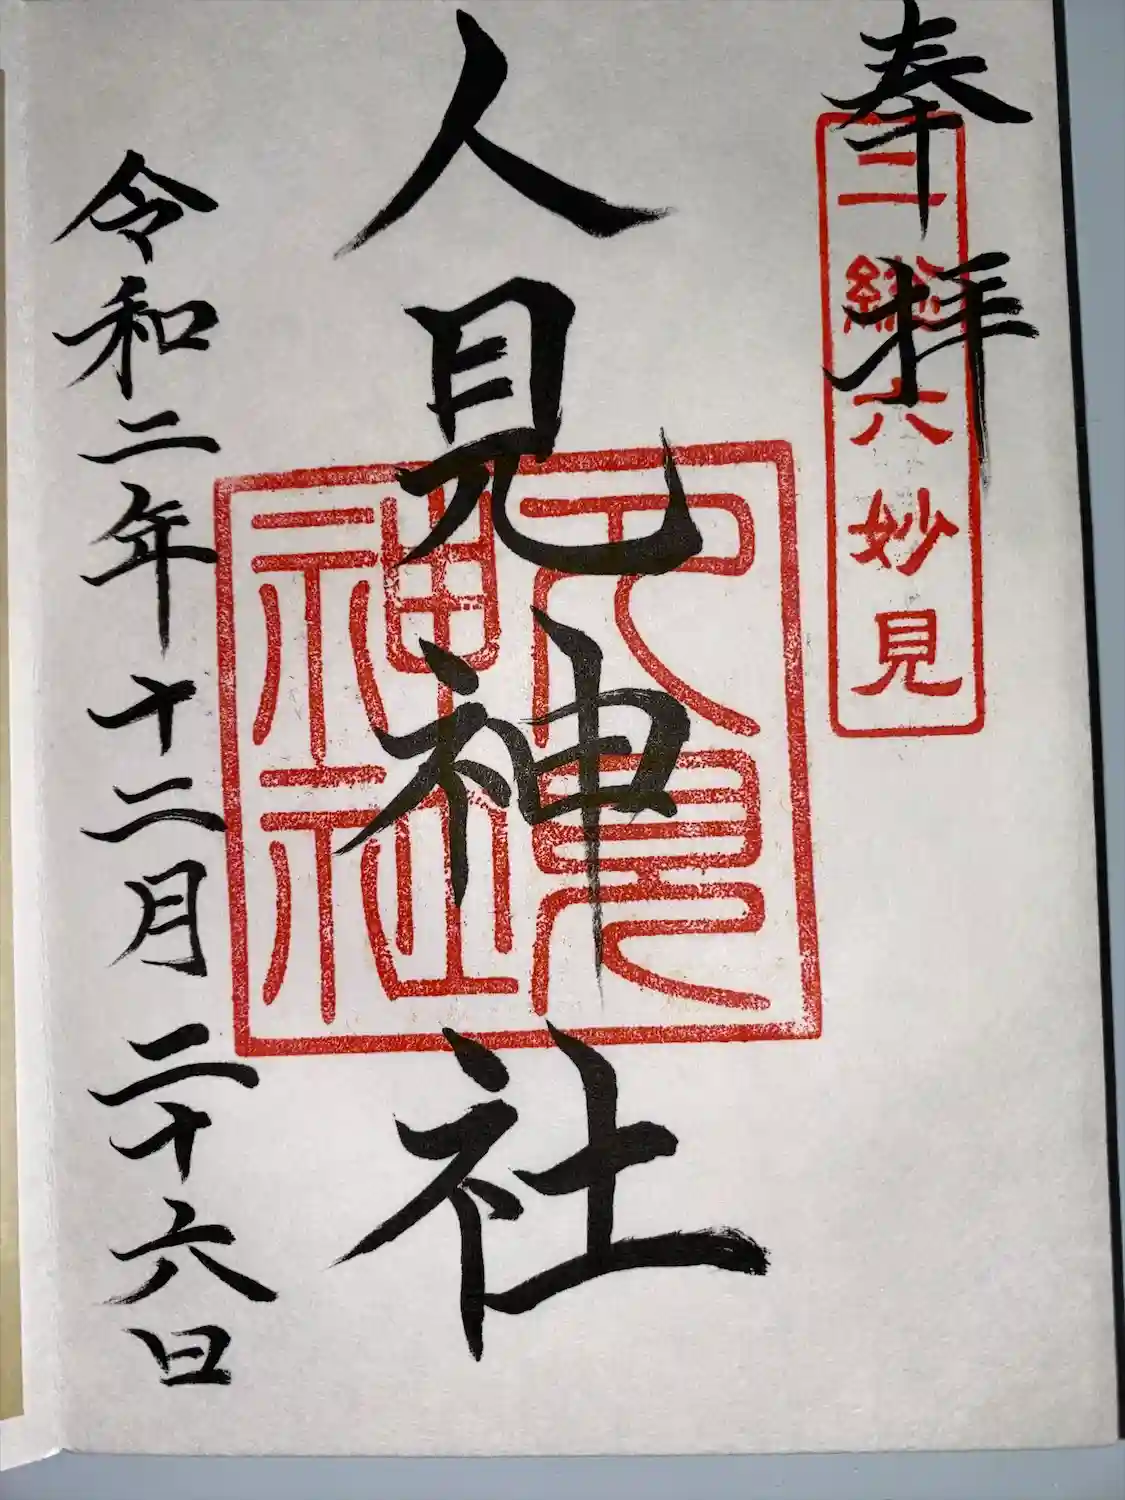 奉拝
二総六妙見
人見神社
人見神社
令和二年十二月二十六日